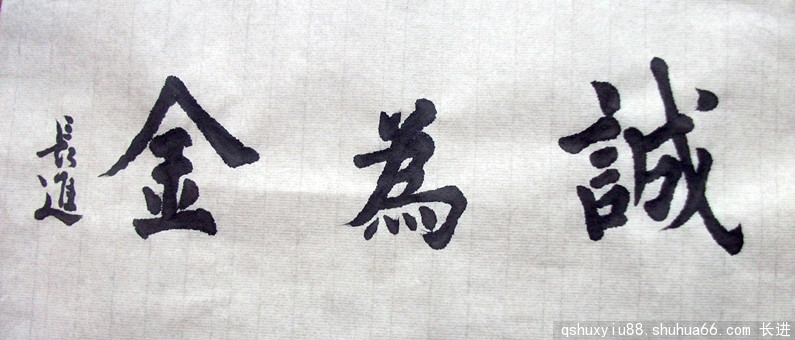 誠為金
長進
qshuxyiu88.shuhua66.com 长进